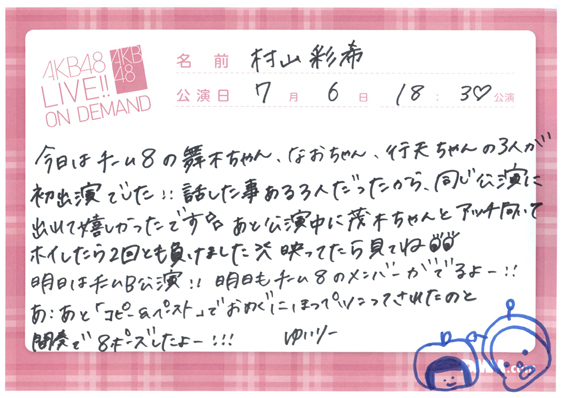 AKB48
LIVE!!
ON DEMAND
AKB
48
名前 村山彩希
公演日 7月6日 18:30公演
今日はチーム8の舞木ちゃん、なおちゃん、行天ちゃんの3人が
初出演でした!! 話した事ある3人だったから、同じ公演に
出れて嬉しかったです あと公演中に茂木ちゃんとアッチ向いて
ホイしたら2回とも負けました 映ってたら見てね
明日はチームB公演!! 明日もチーム8のメンバーがでるよー!!
あ:あと「コピー&ペスト」でおめぐにほっぺツンってされたのと
間奏で8ポーズしたよー!!!
ゆいりー